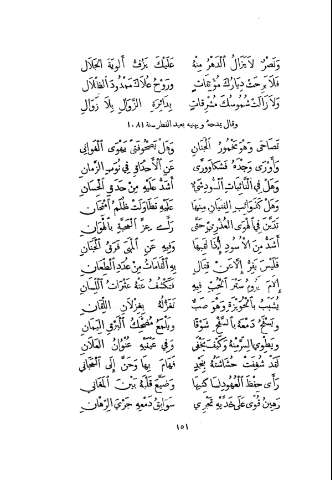 وَنَصْرٌ لَا يَزَالُ الدَّهْرُ مِنْهُ عَلَيْكَ يَرِفُّ أَلْوِيَةُ الْجَلَالِ
فَلَا بَرِحَتْ دِيَارُكَ مُونِقَاتٍ وَرَوْحُ عُلَاكَ مَمْدُودَ الظِّلَالِ
وَلَا زَالَتْ شُمُوسُكَ مُشْرِقَاتٍ بِدَائِرَةِ الزَّوَالِ بِلَا زَوَالِ
وقال يمدحه ويهنيه بعيد الفطر سنة ١٠٨١
تَصَاحَى وَهْوَ مَخْمُورُ الْجَنَانِ وَهَلْ يَصْحُو فَتًى يَهْوَى الْغَوَانِي
وَأَوْرَى وَجْدَهُ فَشَكَا وَوَرَّى عَنِ الْأَحْدَاقِ فِي نُوَبِ الزَّمَانِ
وَهَلْ فِي النَّائِبَاتِ السُّودِ شَيْءٌ أَشَدُّ عَلَيْهِ مِنْ حَدَقِ الْحِسَانِ
وَهَلْ كَذَوَائِبِ الْفِتْيَانِ مِنْهَا عَلَيْهِ تَطَاوَلَتْ ظُلَمُ امْتِحَانِ
تَدَيَّنَ فِي الْهَوَى الْعُذْرِيِّ حَتَّى رَأَى عِزَّ الْمَحَبَّةِ بِالْهَوَانِ
أَشَدُّ مِنَ الْأُسُودِ إِذَا لَقِيهَا وَفِيهِ عَنِ الْمَهَى فَرَقُ الْجَبَانِ
فَلَيْسَ يَفِرُّ إِلَّا مِنْ قِتَالٍ بِهِ الْقَامَاتُ مِنْ عُدَدِ الطِّعَانِ
إِلَامَ يَرُومُ سَتْرَ الْحُبِّ فِيهِ فَتَكْشِفُ عَنْهُ عَثَرَاتُ اللِّسَانِ
يُشَبِّبُ بِالْحُوَيْزَةِ وَهْوَ صَبٌّ تَغَزُّلُهُ بِغِزْلَانِ
وَيَسْفَحُ دَمْعَهُ بِالسَّفْحِ شَوْقًا وَيَلْمَعُ مُضْحَكُ الْبَرْقِ الْيَمَانِ
وَيَطْوِي السِّرَّ مِنْهُ وَكَيْفَ يَخْفَى وَفِي عَيْنَيْهِ عُنْوَانُ الْعَلَانِ
لَقَدْ شَغَفَتْ حُشَاشَتُهُ بِنَجْدٍ فَهَامَ بِهَا وَحَنَّ إِلَى
رَأَى حِفْظَ الْعُهُودِ لِسَاكِنِيهَا وَضَيَّعَ قَلْبَهُ بَيْنَ الْمَغَانِي
رَهِينُ قُوًى عَلَى خَدَّيْهِ تَجْرِي سَوَابِقُ دَمْعِهِ جَرْيَ الرِّهَانِ
١٥١